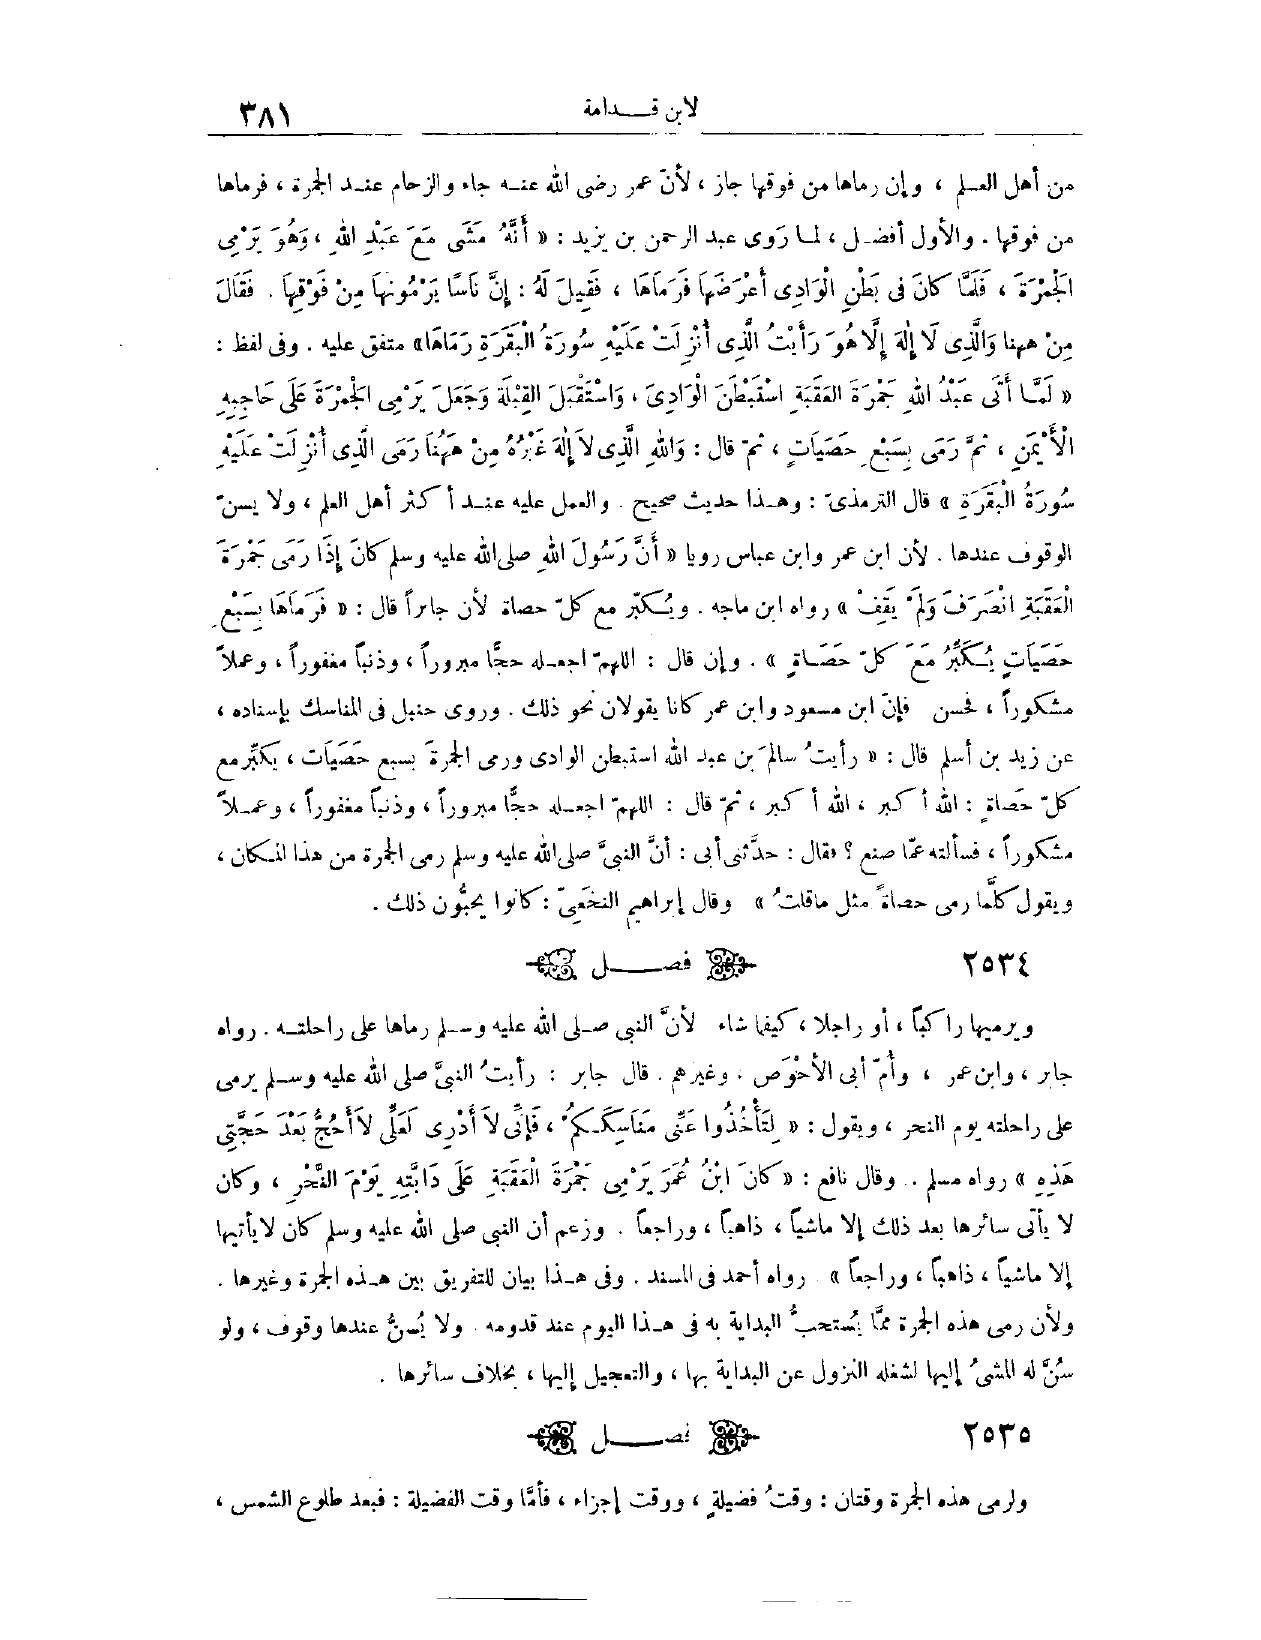 لابن قـــدامة ٣٨١
من أهل العـلم ، وإن رماها من فوقها جاز ، لأنّ عمر رضى الله عنـه جاء والزحام عنـد الجمرة ، فرماها
من فوقها . والأول أفضـل ، لمـا رَوى عبد الرحمن بن يزيد : « أَنَّهُ مَشَى مَعَ عَبْدِ اللهِ ، وَهُوَ يَرْمِى
الْجَمْرَةَ ، فَلَمَّا كَانَ فى بَطْنِ الْوَادِى أعْرَضَهَا فَرَمَاهَا ، فَقِيلَ لَهُ : إِنَّ نَاسًا يَرْمُونَهَا مِنْ فَوْقِهَا . فَقَالَ
مِنْ ههنا وَالَّذِى لَا إِلهَ إِلَّا هُوَ رَأَيْتُ الَّذِى أُنْزِلَتْ عَلَيْهِ سُورَةُ الْبَقَرَةِ رَمَاهَا» متفق عليه . وفى لفظ :
« لَمَّـا أَتَى عَبْدُ اللهِ جَمْرَةَ العَقَبَةِ اسْتَبْطَنَ الْوَادِىَ ، وَاسْتَقْبَلَ القِبْلَةَ وَجَعَلَ يَرْمِى الْجَمْرَةَ عَلَى حَاجِبِهِ
الْأَيْمَنِ ، ثمَّ رَمَى بِسَبْعِ حَصَيَاتٍ ، ثمّ قال : وَاللهِ الَّذِى لاَ إِلهَ غَيْرُهُ مِنْ هَهُنَا رَمَى الَّذِى أُنْزِلَتْ عَلَيْهِ
سُورَةُ الْبَقَرَةِ » قال الترمذىّ : وهـذا حديث صحيح . والعمل عليه عنـد أكثر أهل العلم ، ولا يسنّ
الوقوف عندها . لأن ابن عمر وابن عباس رويا « أَنَّ رَسُولَ اللهِ صلى الله عليه وسلم كَانَ إِذَا رَمَى جَمْرَةَ
الْعَقَبَةِ انْصَرَفَ وَلَمْ يَقِفْ » رواه ابن ماجه . ويُـكبّر مع كلّ حصاة لأن جابراً قال : « فَرَمَاهَا بِسَبْعِ
حَصَيَاتٍ يُـكَبِّرُ مَعَ كلّ حَصَـاةٍ » . وإن قال : اللهمّ اجعـله حجًّا مبروراً ، وذنباً مغفوراً ، وعملاً
مشكوراً ، فحسن فإنّ ابن مسعود وابن عمر كانا يقولان نحو ذلك . وروى حنبل فى المناسك بإسناده ،
عن زيد بن أسلم قال : « رأيتُ سالمَ بن عبد الله استبطن الوادى ورمى الجمرةَ بسبع حَصَيَات ، يكبِّر مع
كلّ حَصاةٍ : الله أكبر ، الله أكبر ، ثمّ قال : اللهمّ اجعـله حجًّا مبروراً ، وذنباً مغفوراً ، وعمـلاً
مشكوراً ، فسألته عمّا صنع ؟ فقال : حدّثنى أبى : أنَّ النبىَّ صلى الله عليه وسلم رمى الجمرة من هذا المـكان ،
ويقول كلَّما رمى حصاةً مثل ماقلتُ » وقال إبراهيم النخَعِىّ : كانوا يحبُّون ذلك .
٢٥٣٤ فصـــل
ويرميها راكباً ، أو راجلا ، كيفما شاء لأنَّ النبى صـلى الله عليه وسـلم رماها على راحلتـه . رواه
جابر ، وابن عمر ، وأمّ أبى الأحْوَص . وغيرهم . قال جابر : رأيتُ النبىَّ صلى الله عليه وسـلم يرمى
على راحلته يوم النحر ، ويقول : « لِتَأْخُذُوا عَنِّى مَنَاسِكَـكمُ ، فَإِنِّى لاَ أَدْرِى لَعَلِّى لاَ أَحُجُّ بَعْدَ حَجَّتِى
هَذِهِ » رواه مسلم . وقال نافع : «كَانَ ابْنُ عُمَرَ يَرْمِى جَمْرَةَ الْعَقَبَةِ عَلَى دَابَّتِهِ يَوْمَ النَّحْرِ ، وكان
لا يأتى سائرها بعد ذلك إلا ماشياً ، ذاهباً ، وراجعاً . وزعم أن النبى صلى الله عليه وسلم كان لايأتيها
إلا ماشياً ، ذاهباً ، وراجعاً » رواه أحمد فى المسند . وفى هـذا بيان للتفريق بين هـذه الجمرة وغيرها .
ولأن رمى هذه الجمرة ممّا يُستحبُّ البداية به فى هـذا اليوم عند قدومه . ولا يُسنُّ عندها وقوف ، ولو
سُنَّ له المشىُ إليها لشغله النزول عن البداية بها ، والتعجيل إليها ، بخلاف سائرها .
٢٥٣٥ فصـــل
ولرمى هذه الجمرة وقتان : وقتُ فضيلةٍ ، ووقت إجزاء ، فأمَّا وقت الفضيلة : فبعد طلوع الشمس ،